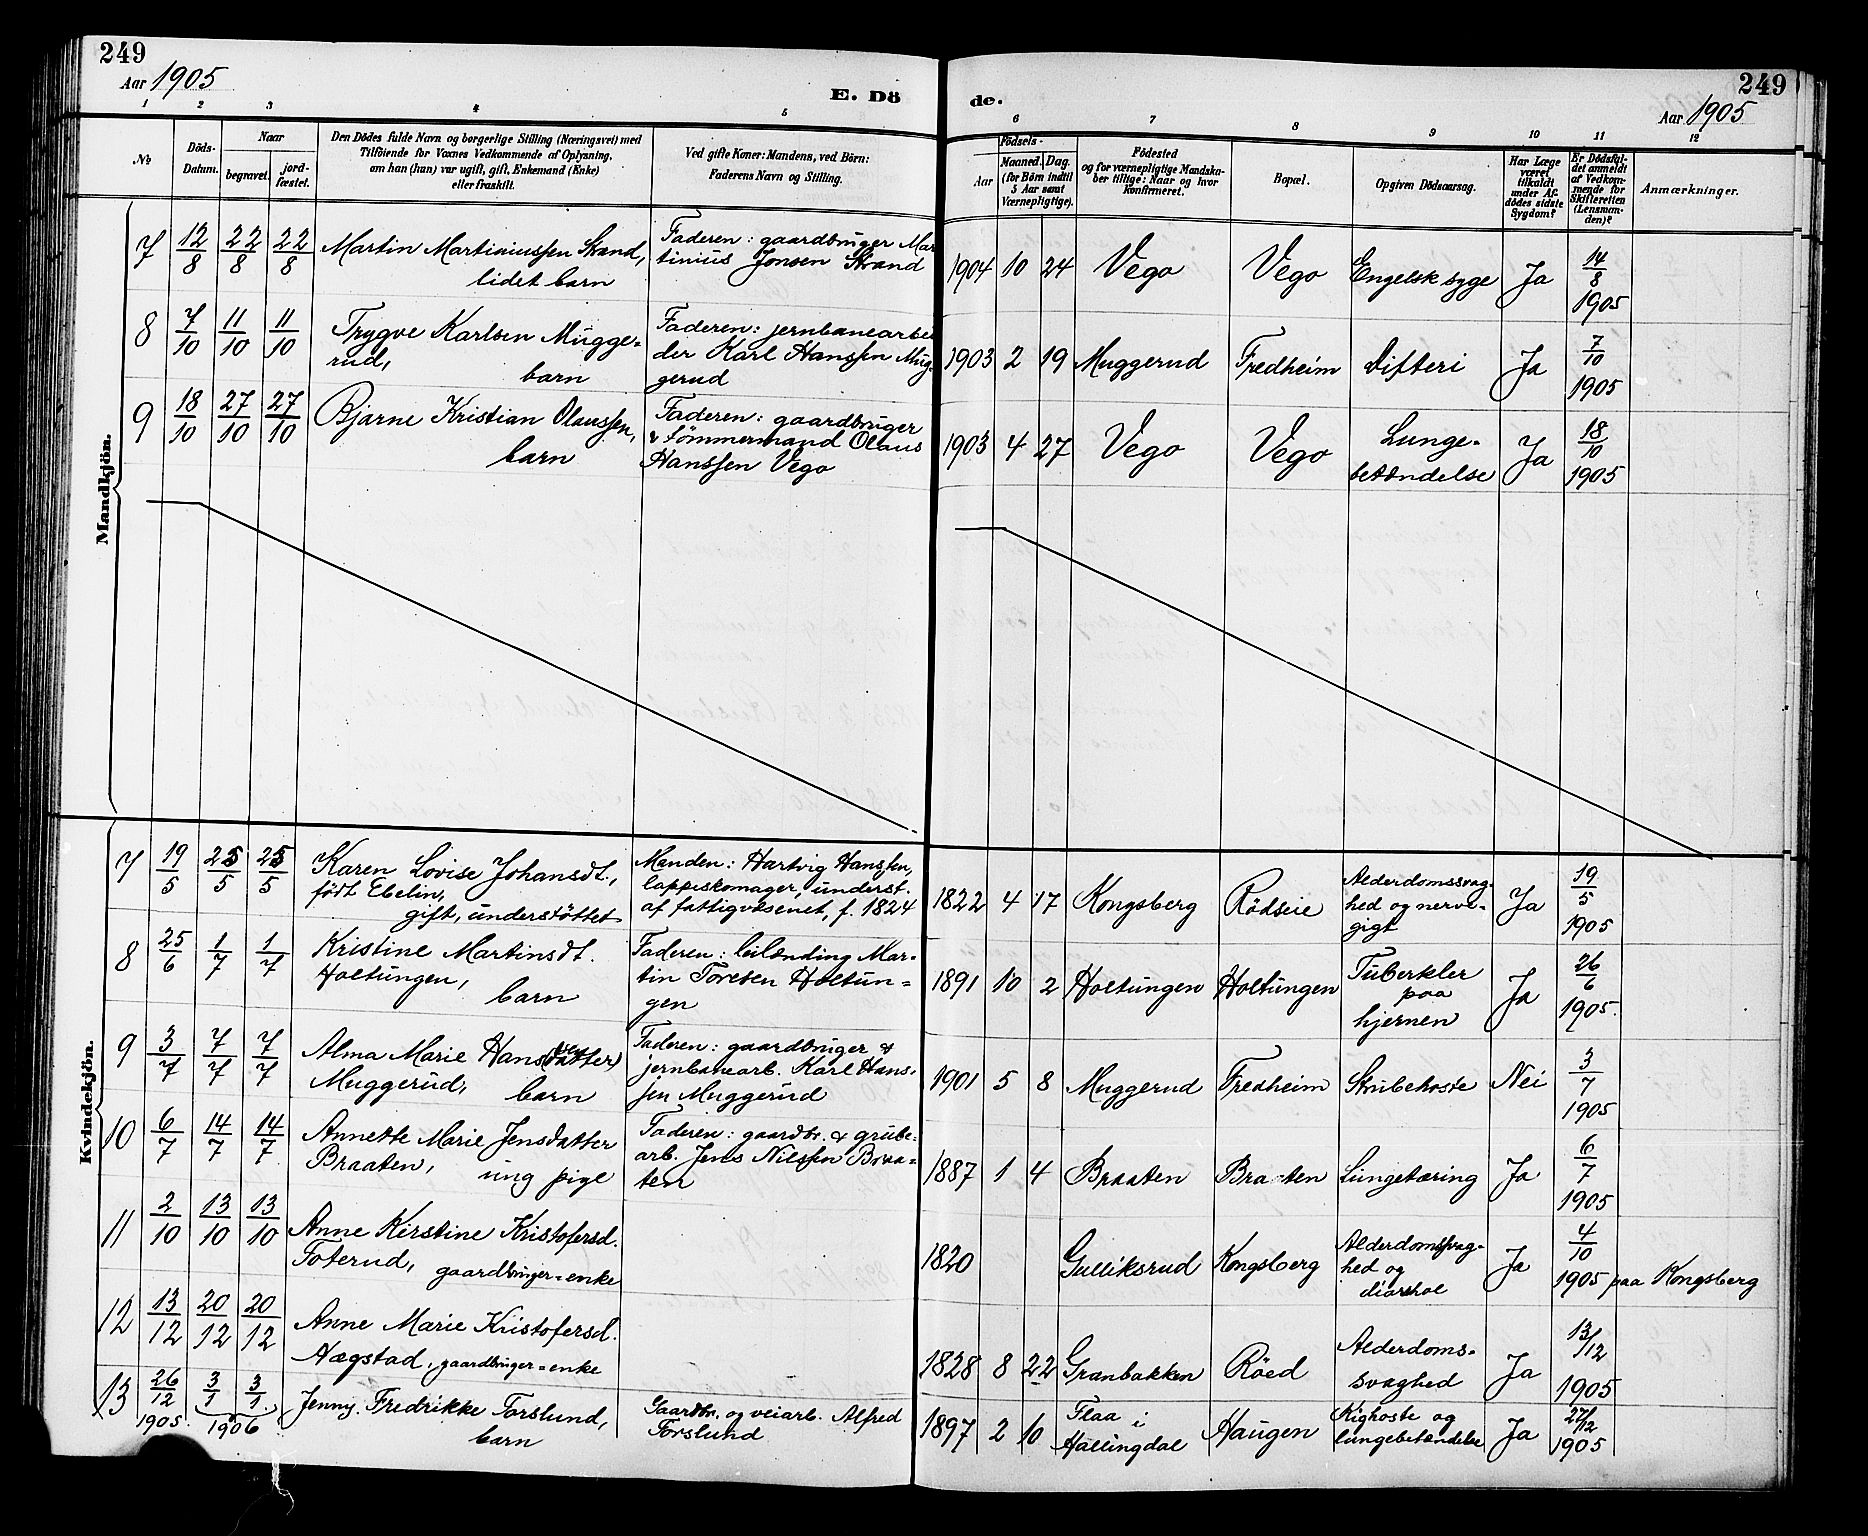 249
Aar 1905
E. Dö
1 2 3 4 5
№
Döds-
Datum.
Naar
begravet.
jord-
fæstet.
Den Dödes fulde Navn og borgerlige Stilling (Næringsvei) med
Tilföiende for Voxnes Vedkommende af Oplysning,
om han (hun) var ugift, gift, Enkemand (Enke)
eller fraskilt.
Ved gifte Koner: Mandens, ved Börn:
Faderens Navn og Stilling.
Mandkjön.
7 12/8 22/8 22/8 Martin Martiniussen Strand,
lidet barn
Faderen: gaardbruger Mar
tinius Jonsen Strand
8 7/10 11/10 11/10 Trygve Karlsen Mugge-
rud,
barn
Faderen: jernbanearbei
der Karl Hanssen Mug-
gerud
9 18/10 27/10 27/10 Bjarne Kristian Olaussen,
barn
Faderen: gaardbruger
& tömmermand Olaus
Hanssen Vego
Kvindekjön.
7 19/5 25/5 25/5 Karen Lovise Johansdt.,
födt Ebelin,
gift, understöttet
Manden: Hartvig Hanssen,
lappeskomager, underst.
af fattigvæsenet, f. 1824
8 25/6 1/7 1/7 Kristine Martinsdt.
Holtungen,
barn
Faderen: leilænding Mar-
tin Toresen Holtun-
gen
9 3/7 7/7 7/7 Alma Marie Hansdatter)
Muggerud,
barn
Faderen: gaardbruger &
jernbanearb. Karl Hans-
sen Muggerud
10 6/7 14/7 14/7 Annette Marie Jensdatter
Braaten,
ung pige
Faderen: gaardbr. & grube-
arb. Jens Nilssen Braa-
ten
11 2/10 13/10 13/10 Anne Kirstine Kristofersd.
Foterud, gaardbruger-enke
12 13/12 20/12 20/12 Anne Marie Kristofersd.
Hægstad, gaardbruger-enke
13 26/12 1905. 3/1 3/1 1906 Jenny Fredrikke Torslund,
barn
Gaardbr. og veiarb. Alfred
Torslund
249
Aar 1905
de.
6 7 8 9 10 11 12
Födsels-
Aar
Maaned. Dag.
(for Börn indtil
5 Aar samt
Værnepligtige).
Födested
og for værnepligtige Mandska-
ber tillige: Naar og hvor
konfirmeret.
Bopæl.
Opgiven Dödsaarsag.
Har Læge
været
tilkaldt
under Af-
dödes sidste
Sygdom?
Er Dödsfal-
det anmeldt
af Vedkom-
mende for
Skifteretten
(Lensman-
den)?
Anmærkninger.
1904 10 24 Vego Vego Engelsk syge Ja 14/8
1905
1903 2 19 Muggerud Fredheim Difteri Ja 7/10
1905
1903 4 27 Vego Vego Lunge-
betændelse Ja 18/10
1905
1822 4 17 Kongsberg Rödseie Alderdomssvag-
hed og nerve-
gigt Ja 19/5
1905
1891 10 2 Holtungen Holtungen Tuberkler
paa
hjernen Ja 26/6
1905.
1901 5 8 Muggerud Fredheim Strubehoste Nei 3/7
1905
1887 1 4 Braaten Braaten Lungetæring Ja 6/7
1905
1820 Gulliksrud Kongsberg Alderdomssvag-
hed og
diarrhoe Ja 4/10
1905 paa Kongsberg
1828 8 22 Granbakken Röed Alderdoms-
svaghed Ja 13/12
1905
1897 2 10 Flaa i
Hallingdal Haugen Kighoste og
lungebetændelse Ja 27/12
1905